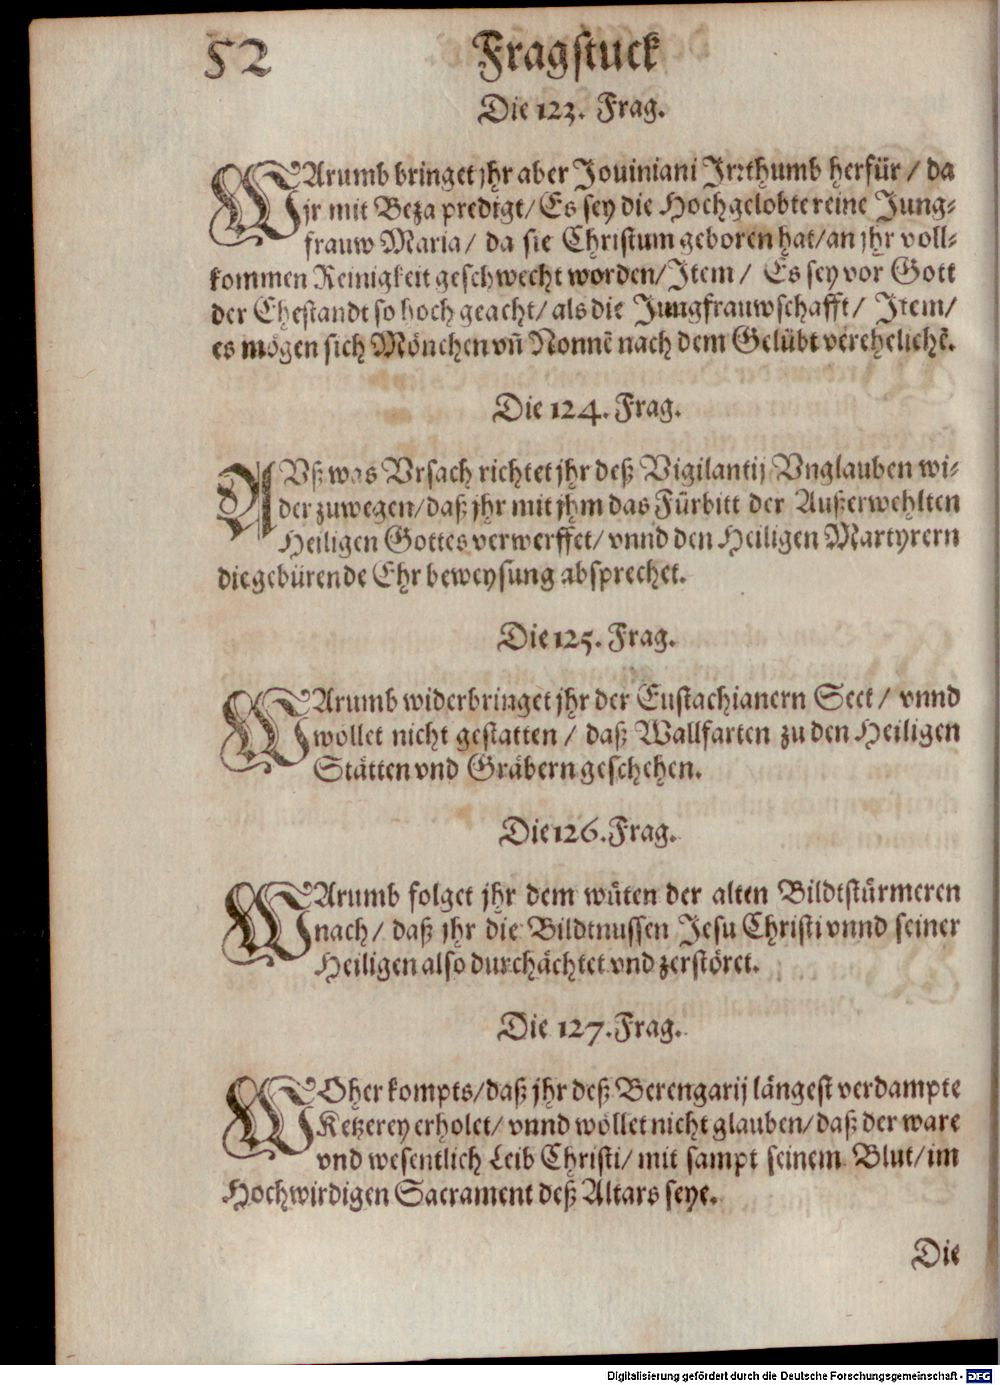 52 Fragstuck
Die 123. Frag.
WArumb bringet jhr aber Jouiniani Irrthumb herfür / da
jr mit Beza predigt / Es sey die Hochgelobte reine Jung-
frauw Maria / da sie Christum geboren hat / an jhr voll-
kommen Reinigkeit geschwecht worden / Item / Es sey vor Gott
der Ehestandt so hoch geacht / als die Jungfrauwschafft / Item /
es mögen sich Mönchen vñ Nonnē nach dem Gelübt verehelichē.
Die 124. Frag.
AVß was Vrsach richtet jhr deß Vigilantij Vnglauben wi-
der zuwegen / daß jhr mit jhm das Fürbitt der Außerwehlten
Heiligen Gottes verwerffet / vnnd den Heiligen Martyrern
die gebürende Ehrbeweysung absprechet.
Die 125. Frag.
WArumb widerbringet jhr der Eustachianern Sect / vnnd
wöllet nicht gestatten / daß Wallfarten zu den Heiligen
Stätten vnd Gräbern geschehen.
Die 126. Frag.
WArumb folget jhr dem wüten der alten Bildtstürmeren
nach / daß jhr die Bildtnussen Jesu Christi vnnd seiner
Heiligen also durchächtet vnd zerstöret.
Die 127. Frag.
WOher kompts / daß jhr deß Berengarij längest verdampte
Ketzerey erholet / vnnd wöllet nicht glauben / daß der ware
vnd wesentlich Leib Christi / mit sampt seinem Blut / im
Hochwirdigen Sacrament deß Altars seye.
Die
Digitalisierung gefördert durch die Deutsche Forschungsgemeinschaft - DFG